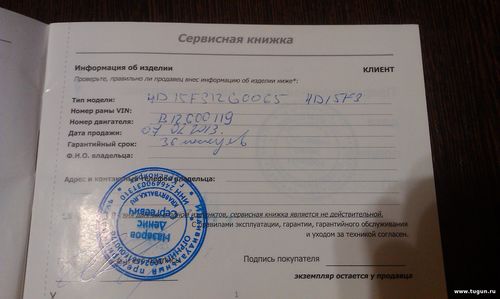 Сервисная книжка
Информация об изделии
КЛИЕНТ
Проверьте, правильно ли продавец внес информацию об изделии ниже*:
Тип модели: HD15F312G0065 HD15F3
Номер рамы VIN:
Номер двигателя: B12G00119
Дата продажи: 07.02.2013.
Гарантийный срок: 36 месяцев
Ф.И.О. владельца:
Адрес и контактный телефон владельца:
пунктов, сервисная книжка является не действительной.
С правилами эксплуатации, гарантии, гарантийного обслуживания
и ухода за техникой согласен.
Назаров
Денис
Сергеевич
Подпись покупателя
экземпляр остается у продавца
1
www.tugun.ru